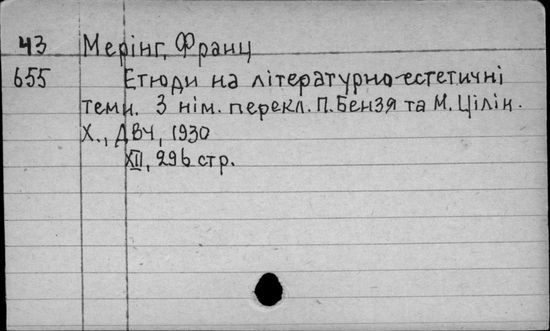 43 Мерінг, Франц
655 Етюди на літературно-естетичні
теми. З нім. перекл. П. Бензя та М. Цілін.
Х., ДВЧ, 1930
XII, 296 стр.